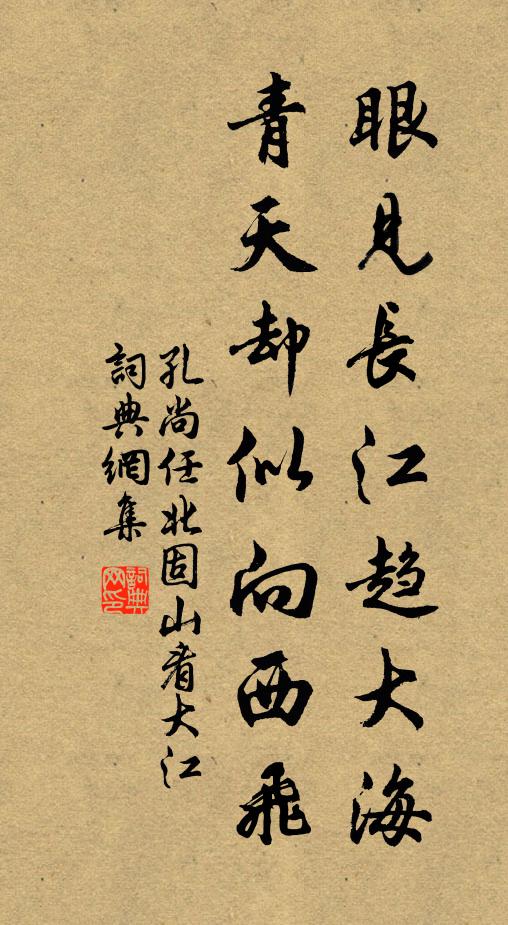 眼見長江趨大海
青天却似向西飛
孔尚任北固山看大江
詞典網集
詞典
网印